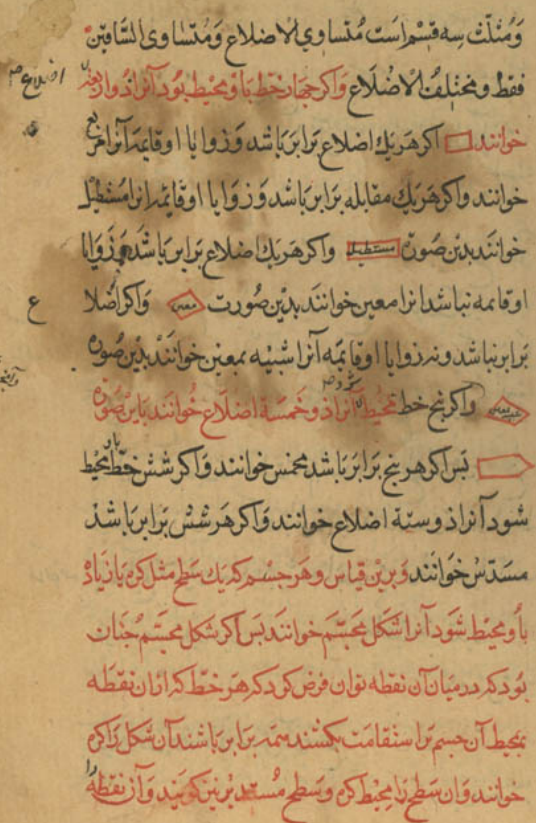 ومثلث سه قسم است متساوي الاضلاع ومتساوى الساقین
فقط ومختلف الاضلاع واکر چهار خط باو محیط بود آنرا ذواربعة اضلاع
خوانند اکر هر یك اضلاع برابر باشد وزوایا او قایمه آنرا مربع
خوانند واکر هر یك مقابله برابر باشد وزوایا او قایمه انرا مستطیل
خوانند بدین صورة مستطیل واکر هر یك اضلاع برابر باشد وزوایا
او قایمه نباشد انرا معین خوانند بدین صورت معین واکر اضلاع
برابر نباشد ونه زوایا او قایمه آنرا شبیه بمعین خوانند بدین صورة
شبیه بمعین واکر پنج خط محیط شود آنرا ذو خمسة اضلاع خوانند باین صورة
بس اکر هر پنج برابر باشد مخمس خوانند واکر شش خط باو محیط
شود آنرا ذو ستة اضلاع خوانند واکر هر شش برابر باشد
مسدس خوانند وبرین قیاس وهر جسم که یك سطح مثل کره یا زیاد
باو محیط شود آنرا شکل مجسم خوانند بس اکر شکل مجسم چنان
بود که در میان آن نقطه توان فرض کرد که هر خط که از ان نقطه
بمحیط آن جسم بر استقامت بکشند همه برابر باشند آن شکل را کره
خوانند وان سطح را محیط کره وسطح مستدیر نیز کویند وآن نقطه را